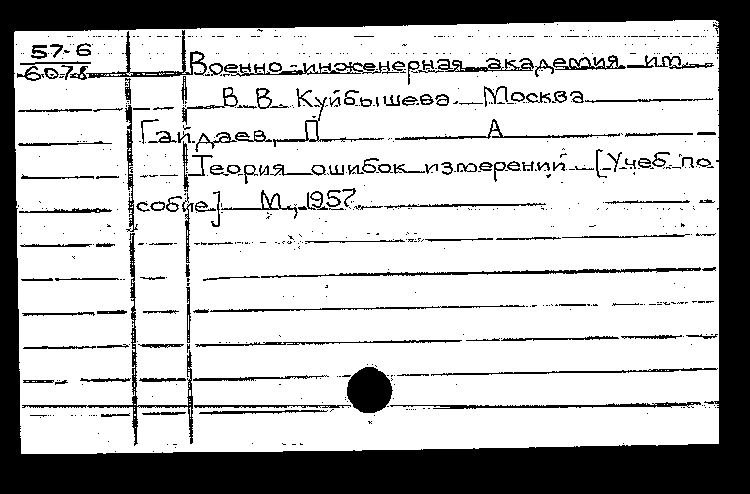 57-6
6078
Военно-инженерная академия им.
В. В. Куйбышева. Москва
Гайдаев, П А
Теория ошибок измерений. [Учеб. по-
собие] М., 1957.